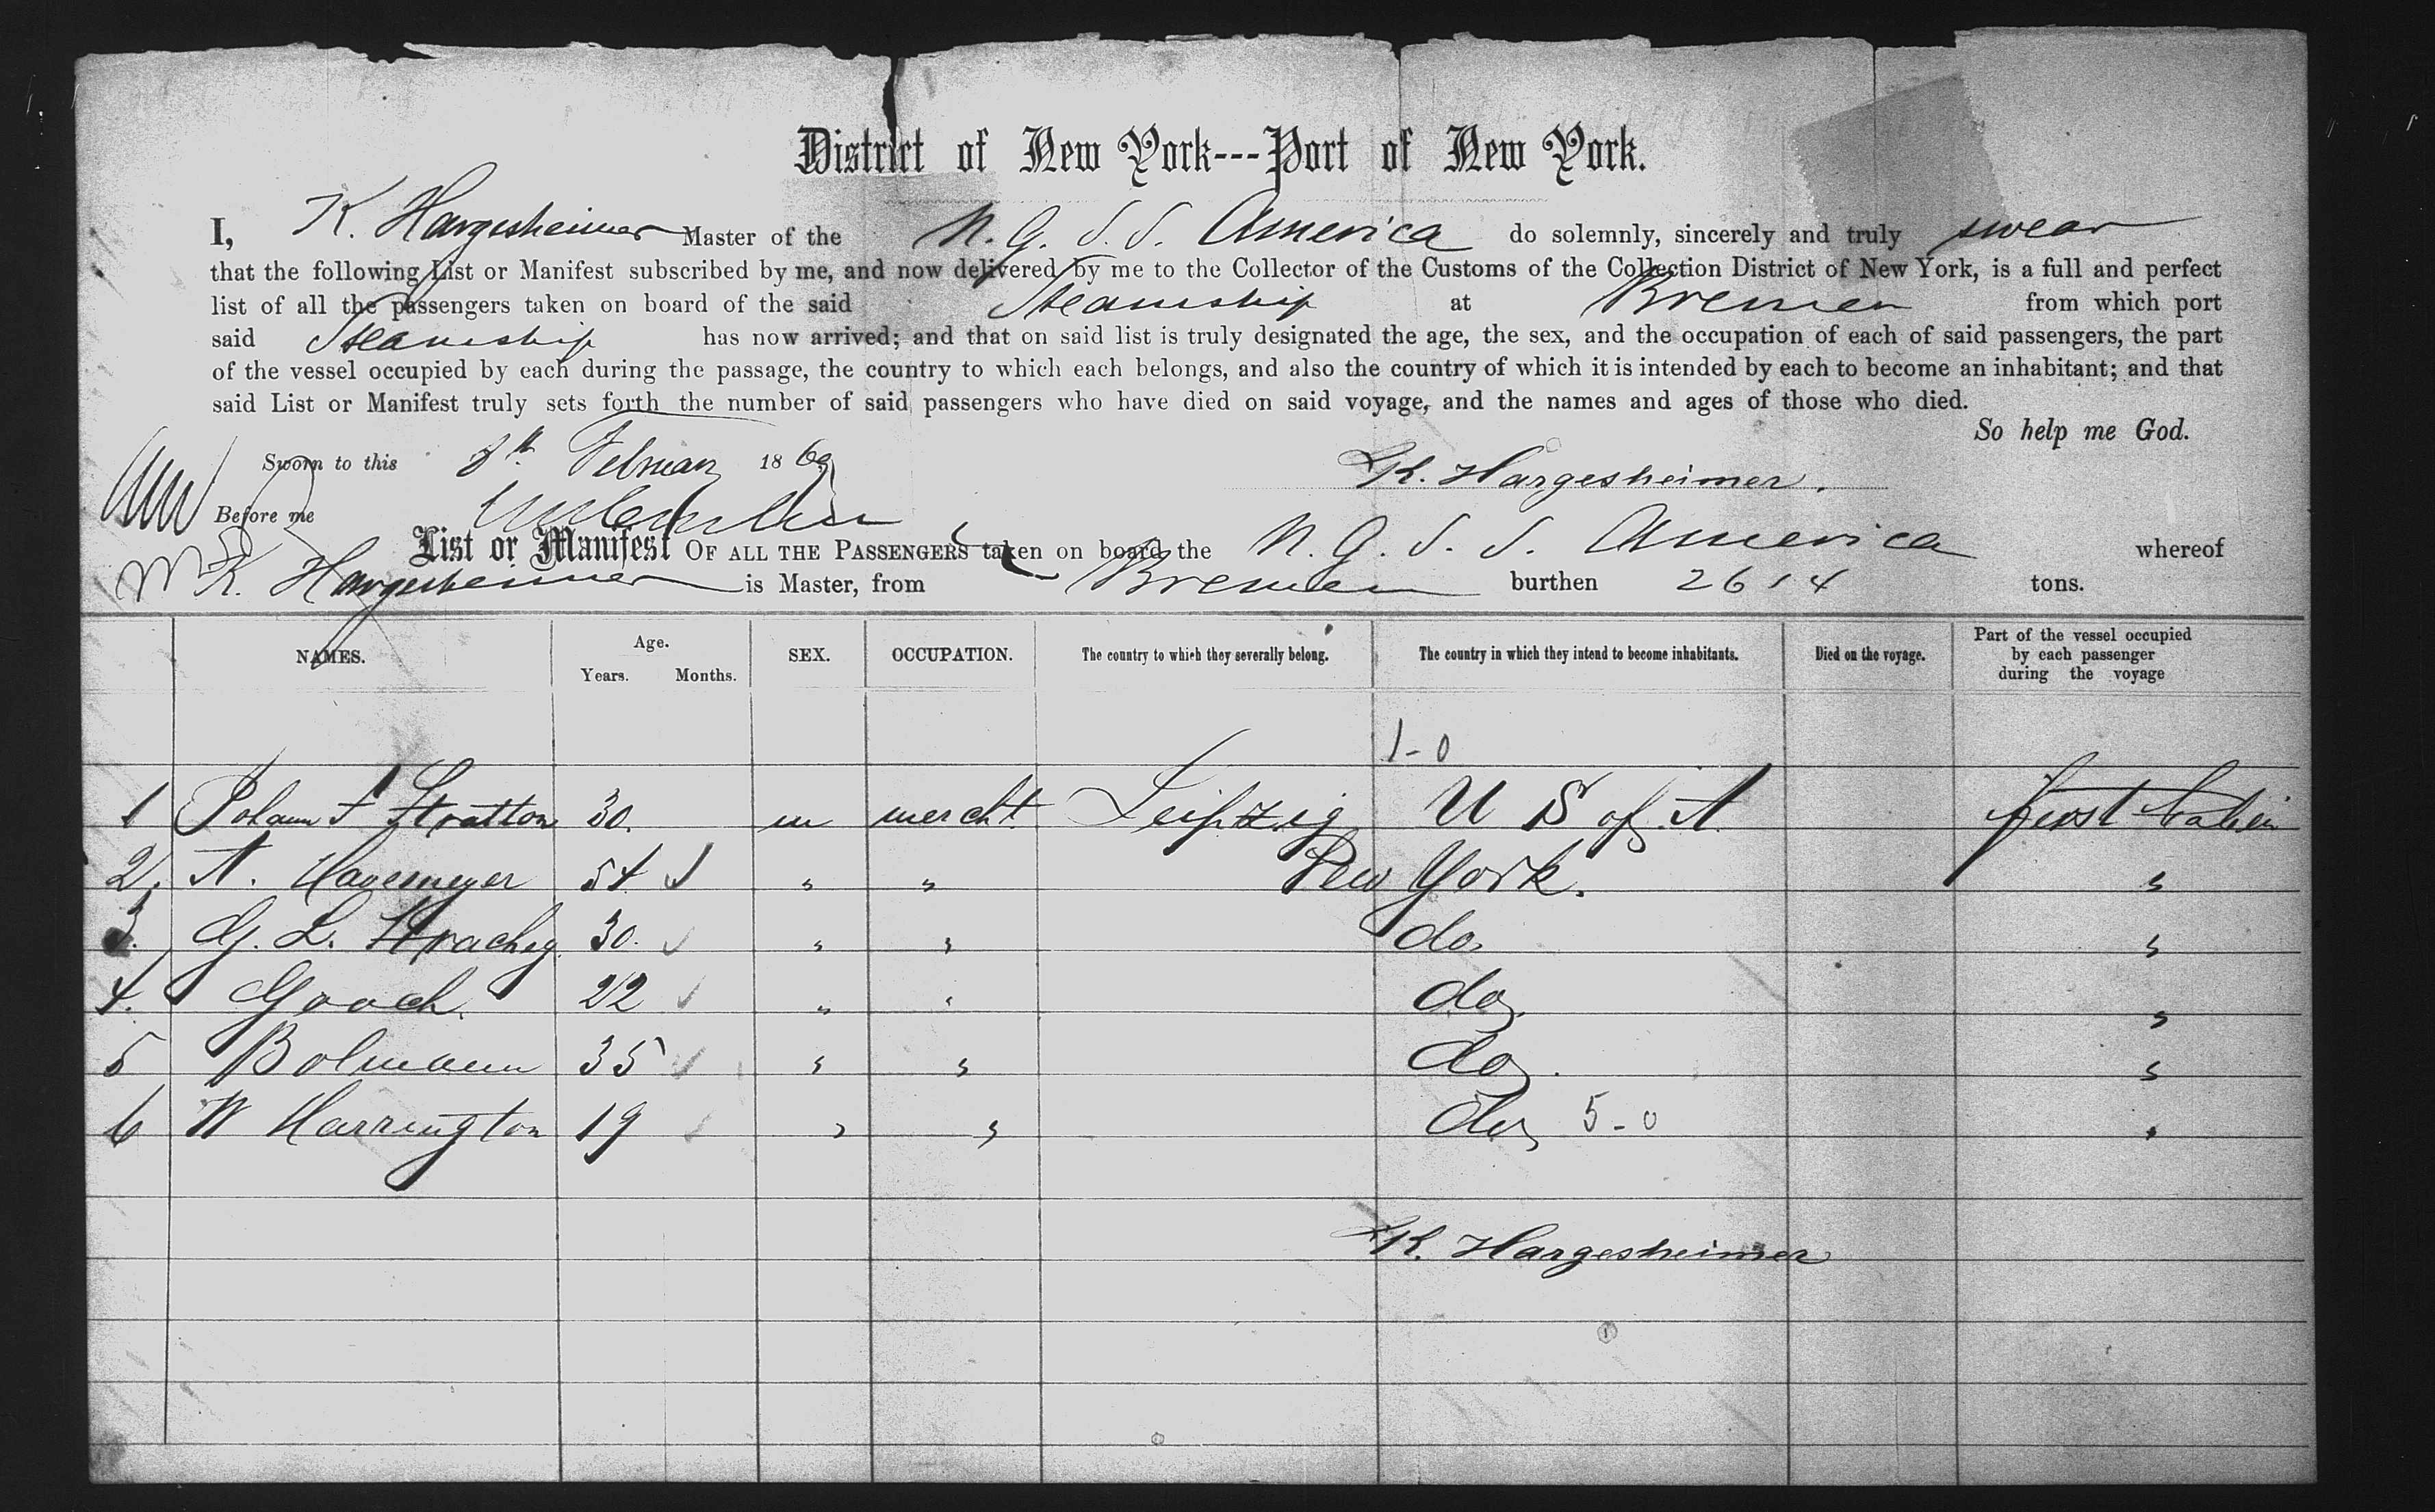 District of New York---Port of New York.
I, K. Hargesheimer Master of the N. G. S. S. America do solemnly, sincerely and truly swear
that the following List or Manifest subscribed by me, and now delivered by me to the Collector of the Customs of the Collection District of New York, is a full and perfect
list of all the passengers taken on board of the said Steamship at Bremen from which port
said Steamship has now arrived; and that on said list is truly designated the age, the sex, and the occupation of each of said passengers, the part
of the vessel occupied by each during the passage, the country to which each belongs, and also the country of which it is intended by each to become an inhabitant; and that
said List or Manifest truly sets forth the number of said passengers who have died on said voyage, and the names and ages of those who died.
So help me God.
Sworn to this 8th Februar 1869 K. Hargesheimer.
Before me
List or Manifest OF ALL THE PASSENGERS taken on board the N. G. S. S. America whereof
K. Hargesheimer is Master, from Bremen burthen 2614 tons.
NAMES. Age. Years. Months. SEX. OCCUPATION. The country to which they severally belong. The country in which they intend to become inhabitants. Died on the voyage. Part of the vessel occupied by each passenger during the voyage
1-0
1 Stratton 30. m mercht Leipzig U S of A first Cabin
2. A. Havemeyer 54 " " New York. "
3. G. L. Strachey 30. " " do. "
4. Gooch. 22 " " do. "
5 Bolmann 35 " " do. "
6 W Harrington 19 " " do. 5-0 "
K. Hargesheimer